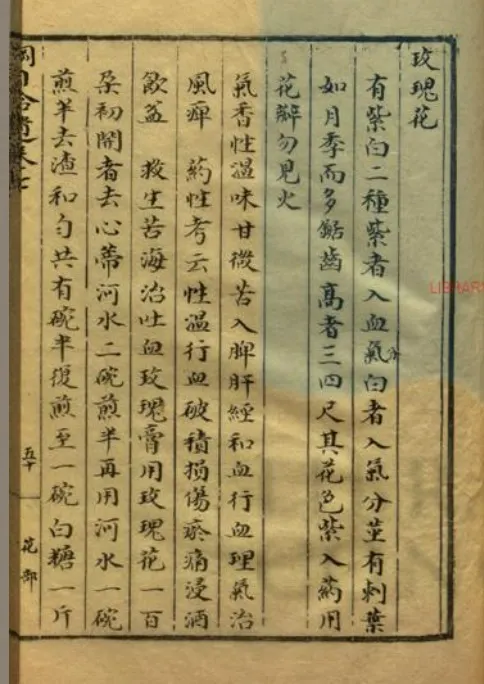 玫瑰花
有紫白二種紫者入血氣分白者入氣分莖有刺葉
如月季而多鋸齒高者三四尺其花色紫入藥用
花瓣勿見火
氣香性溫味甘微苦入脾肝經和血行血理氣治
風痺 葯性考云性溫行血破積損傷瘀痛浸酒
飲益 救生苦海治吐血玫瑰膏用玫瑰花一百
朶初開者去心蒂河水二碗煎半再用河水一碗
煎半去渣和勻共有碗半復煎至一碗白糖一斤
綱目拾遺卷七
五十
花部
LIBRAR